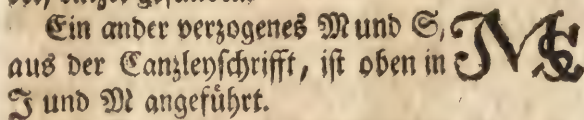 Ein ander verzogenes M und S,
aus der Canzleyschrifft, ist oben in
J und M angeführt.